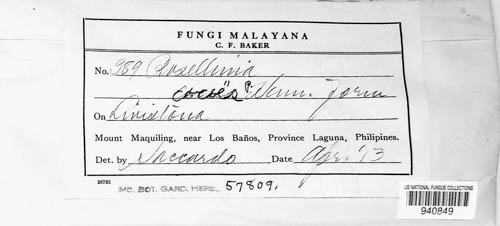 FUNGI MALAYANA
C. F. BAKER
No. 989 Rosellinia
cocoës P. Henn. form
On Livistona
Mount Maquiling, near Los Baños, Province Laguna, Philipines.
Det. by Saccardo Date Apr. '13
26702
MO. BOT. GARD. HERB. 57809.
US NATIONAL FUNGUS COLLECTIONS
940849